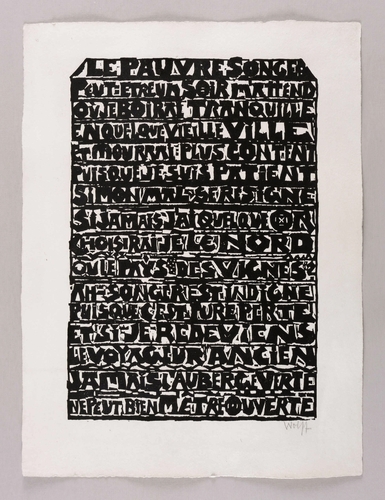 LE PAUVRE SONGE
PEUT-ETRE UN SOIR M'ATTEND
OU JE BOIRAI TRANQUILLE
EN QUELQUE VIEILLE VILLE
ET MOURRAI PLUS CONTENT
PUISQUE JE SUIS PATIENT
SI MON MAL SE RESIGNE
SI JAMAIS J'AI QUELQUE OR
CHOISIRAI JE LE NORD
OU LE PAYS DES VIGNES
AH SONGER EST INDIGNE
PUISQUE C'EST PURE PERTE
ET SI JE REDEVIENS
LE VOYAGEUR ANCIEN
JAMAIS L'AUBERGE VERTE
NE PEUT BIEN M'ETRE OUVERTE